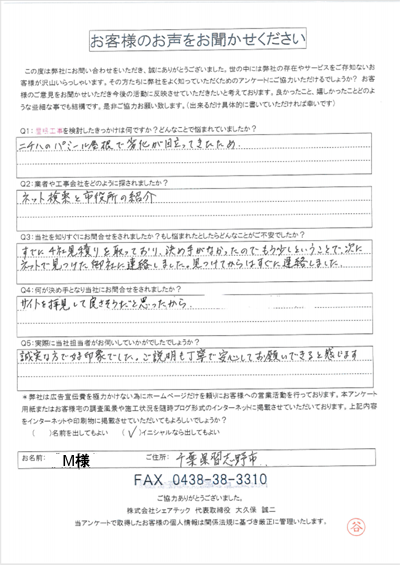 お客様のお声をお聞かせください
この度は弊社にお問い合わせをいただき、誠にありがとうございました。世の中には弊社の存在やサービスをご存知ないお
客様が沢山いらっしゃいます。その方たちに弊社をよく知っていただくためのアンケートにご協力いただけるでしょうか? お客
様のご意見をお聞かせいただき今後の活動に反映させていただきたいと考えております。良かったこと、嬉しかったことどのよ
うな些細な事でも結構です。是非ご協力お願い致します。(出来るだけ具体的に書いていただければ幸いです)
Q1:屋根工事を検討したきっかけは何ですか?どんなことで悩まれていましたか?
ニチハのパミール屋根で劣化が目立ってきたため.
Q2:業者や工事会社をどのように探されましたか?
ネット検索と市役所の紹介
Q3:当社を知りすぐにお問合せをされましたか?もし悩まれたとしたらどんなことがご不安でしたか?
すでに4社見積りを取っており、決め手がなかったのでもう少しということで、次に
ネットで見つけた御社に連絡しました。見つけてからはすぐに連絡しました.
Q4:何が決め手となり当社にお問合せをされましたか?
サイトを拝見して良さそうだと思ったから.
Q5:実際に当社担当者がお伺いしていかがでしたでしょうか?
誠実な方で好印象でした。ご説明も丁寧で安心してお願いできると感じます
*弊社は広告宣伝費を極力かけない為にホームページだけを頼りにお客様への営業活動を行っております。本アンケート
用紙またはお客様宅の調査風景や施工状況を随時ブログ形式のインターネットに掲載させていただいております。上記内容
をインターネットや印刷物に掲載させていただいてもよろしいでしょうか?
( )名前を出してもよい (✓)イニシャルなら出してもよい
お名前: M様 ご住所: 千葉県習志野市
FAX 0438-38-3310
ご協力ありがとうございました。
株式会社シェアテック 代表取締役 大久保 誠二
当アンケートで取得したお客様の個人情報は関係法規に基づき厳正に管理いたします。
谷